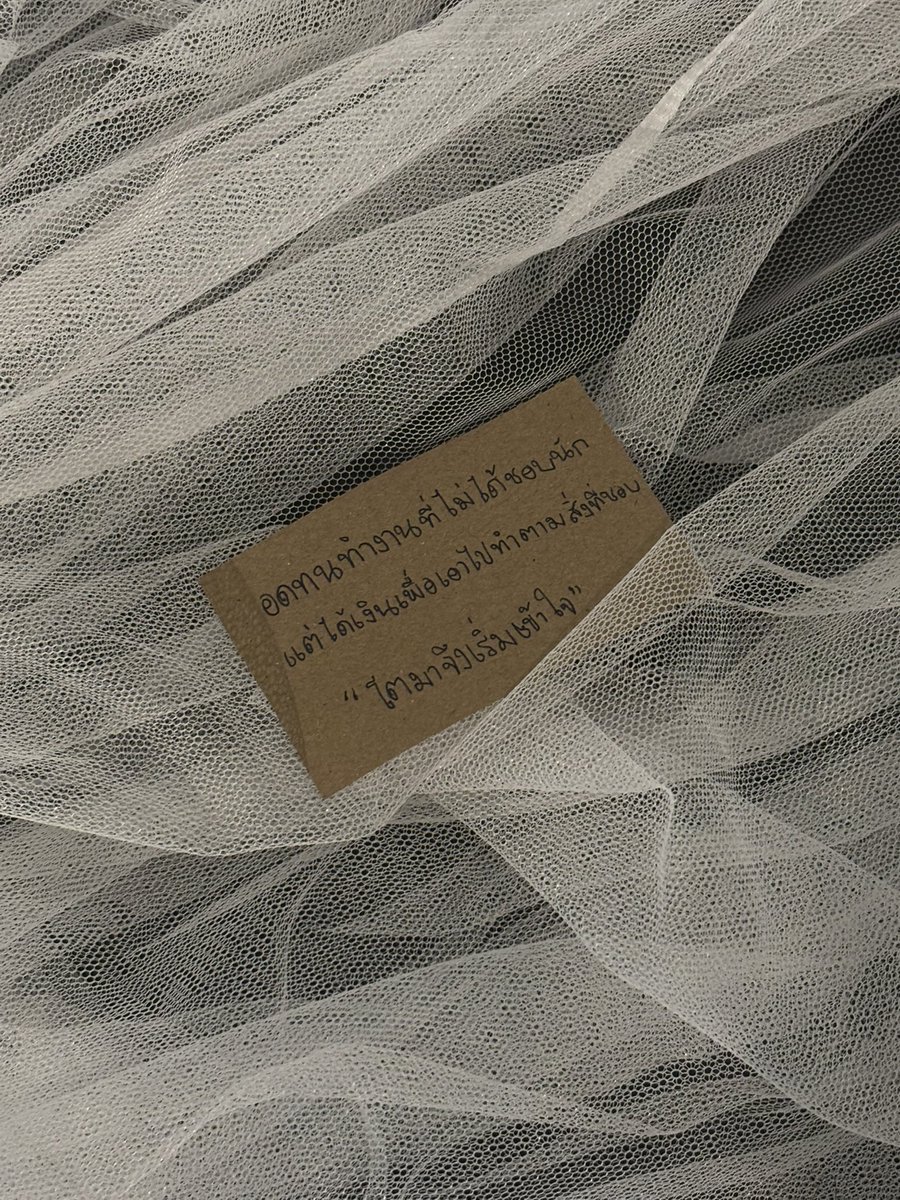 อดทนทำงานที่ไม่ได้ชอบนัก
แต่ได้เงินเพื่อเอาไปทำตามสิ่งที่ชอบ
“โตมาจึงเริ่มเข้าใจ”